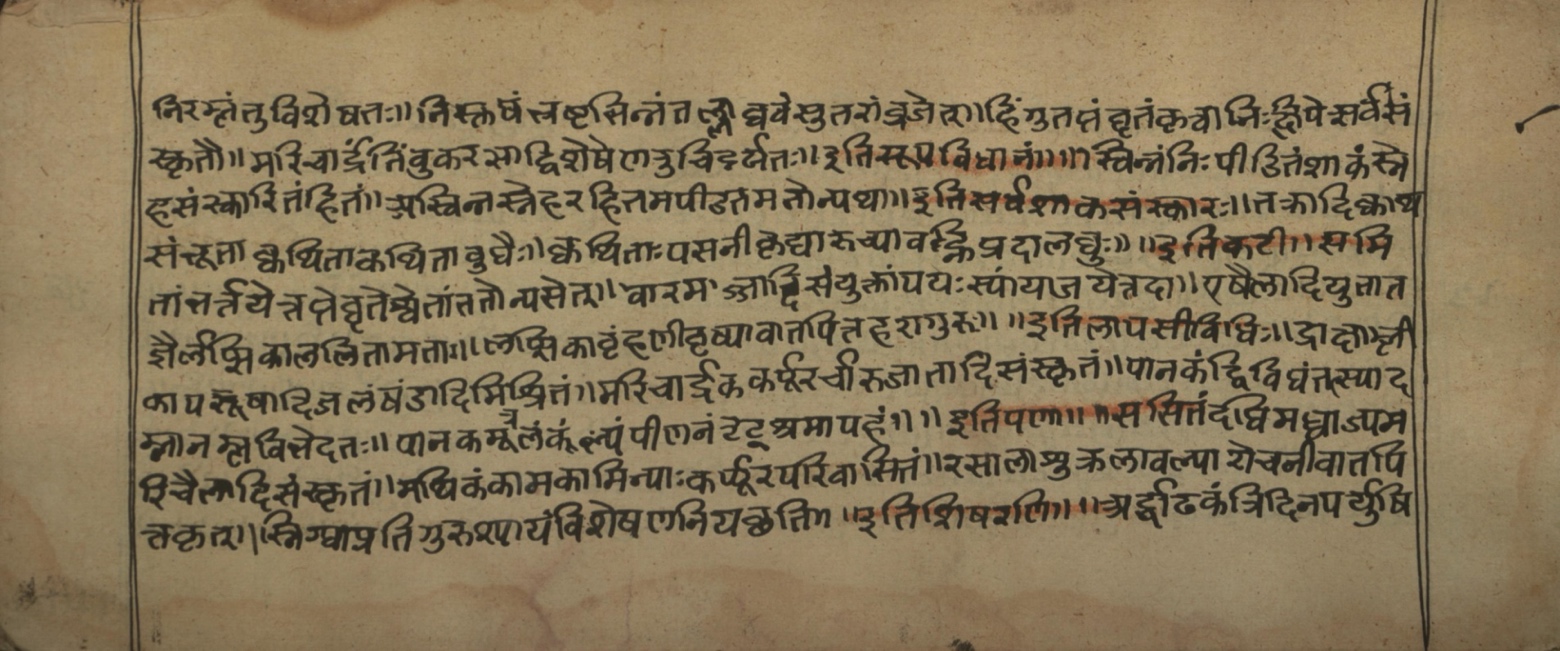 निरग्नंतु विशेषतः॥ निस्तुषं भृष्टसिन्नंतल्लाघ्रवेसुतरांव्रजेत्॥ हिंगुतप्तं घृतंकृत्वा निःक्षिपेत्सर्वसं
स्कृतौ॥ मरिचार्द्रतिंबुकरसाद्विशेषेणरुचिप्रदंमतः॥ इतिसूपविधानं॥॥ स्विन्नंनिःपीडितंशाकंस्ने
हसंस्कारितंहितं॥ अस्विन्नस्नेहरहितमपीडतमतोन्यथा॥ इतिसर्वशाकसंस्कारः॥ तक्रादिक्वाथ
संभूता क्वथिताकथिताबुधैः॥ क्वथिताःपसनीकृद्यारुच्यावह्निप्रदालघुः॥ ॥इतिकटी॥ समि
तांभर्ज्जयेत्तप्तेघृतेश्वेतांततोन्यसेत्॥ वारम॰ज्जार्द्दिसंयुक्तांपयःस्पांयाजयेत्तदा॥ एषैलादियुतात
ज्ञैर्लप्सिकाललितामताः॥ लप्सिकाबृंहणीवृष्यावातपित्तहरागुरूः॥ ॥इतिलापसीविधिः॥ द्राक्षाम्ली
कापरूषादिजलंषंडादिमिश्रितं॥ मरिचार्द्रककर्पूरचारुजातादिसंस्कृतं॥ पानकंद्विविधंतत्स्याद
म्लानम्लविभेदतः॥ पानकम्मूत्रलंरूंच्यंपीणनंटेट्श्रमापहं॥ ॥इतिपणा॥ ॥ससितंदधिमध्वाज्यम
रिचैलादिसंस्कृतं॥ मथिकंकामकामिन्याःकर्पूरपरिवासितं॥ रसालाशुक्रलाबल्पारोचनीवातपि
त्तकृत्॥ स्निग्धाप्रतिगुरुश्पायंविशेषणनियच्छति॥ ॥इतिशिषरणि॥ ॥अर्द्धाढकंत्रिदिनपर्युषि